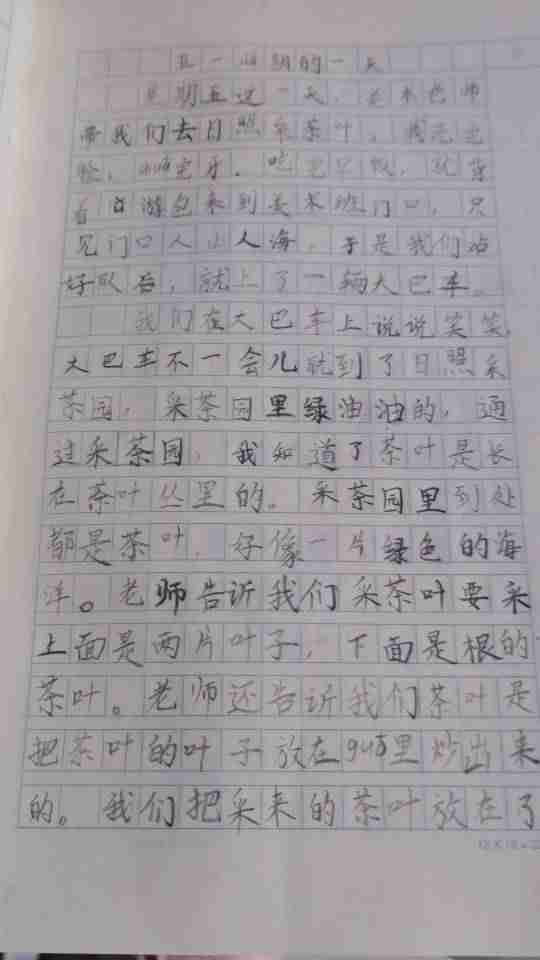 的一天
星期五这一天,美术老师
带我们去日照采茶叶。我先洗
脸,刷完牙.吃完早饭,就背
着旅游包来到美术班门口,只
见门口人山人海,于是我们站
好队后,就上了一辆大巴车。
我们在大巴车上说说笑笑,
大巴车不一会儿就到了日照采
茶园,采茶园里绿油油的,通
过采茶园,我知道了茶叶是长
在茶叶丛里的。采茶园里到处
都是茶叶,好像一片绿色的海
洋。老师告诉我们采茶叶要采
上面是两片叶子,下面是根的
茶叶。老师还告诉我们茶叶是
把茶叶的叶子放在里炒出来
的。我们把采来的茶叶放在了